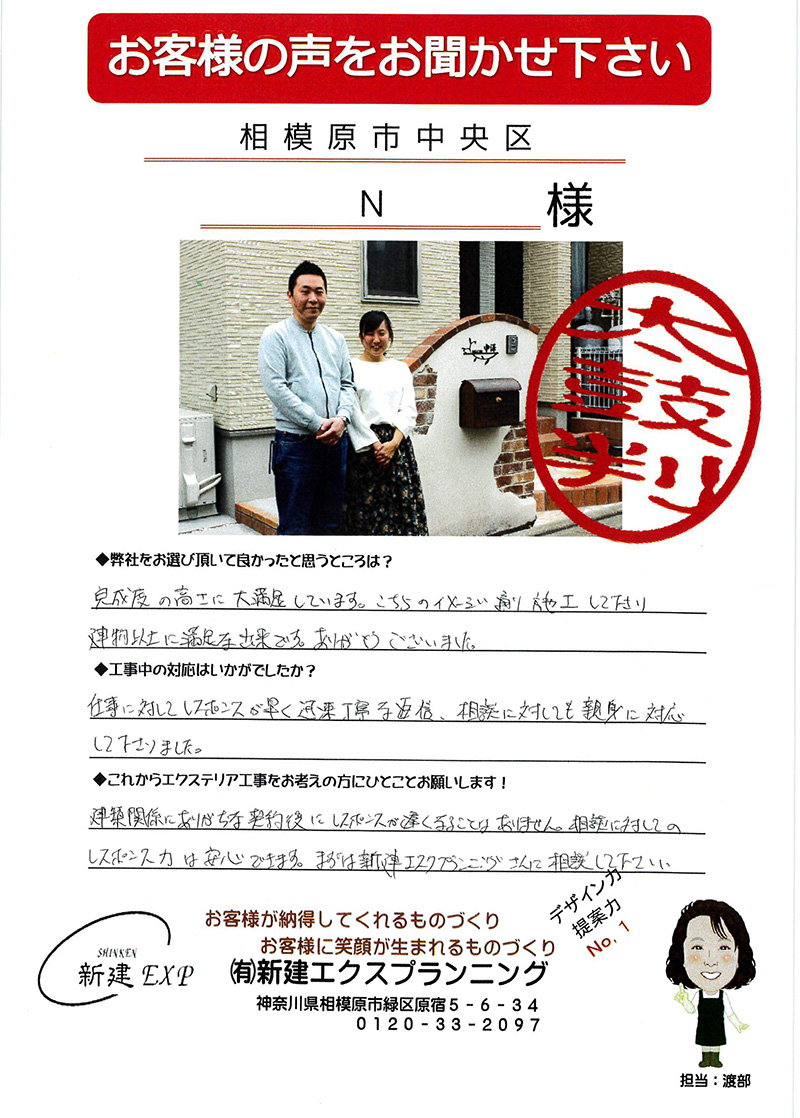 お客様の声をお聞かせ下さい
相模原市中央区
N 様
太
鼓
判
◆弊社をお選び頂いて良かったと思うところは?
完成度の高さに大満足しています。こちらのイメージ通り施工して下さり
建物以上に満足な出来です。ありがとうございました。
◆工事中の対応はいかがでしたか?
仕事に対してレスポンスが早く迅速丁寧な返信、相談に対しても親身に対応
して下さりました。
◆これからエクステリア工事をお考えの方にひとことお願いします!
建築関係にありがちな契約後にレスポンスが遅くなることはありません。相談に対しての
レスポンス力は安心できます。まずは新建エクスプランニングさんに相談して下さい
デザイン力
提案力
No.1
お客様が納得してくれるものづくり
お客様に笑顔が生まれるものづくり
SHINKEN
新建 EXP
㈲新建エクスプランニング
神奈川県相模原市緑区原宿5-6-34
0120-33-2097
担当:渡部